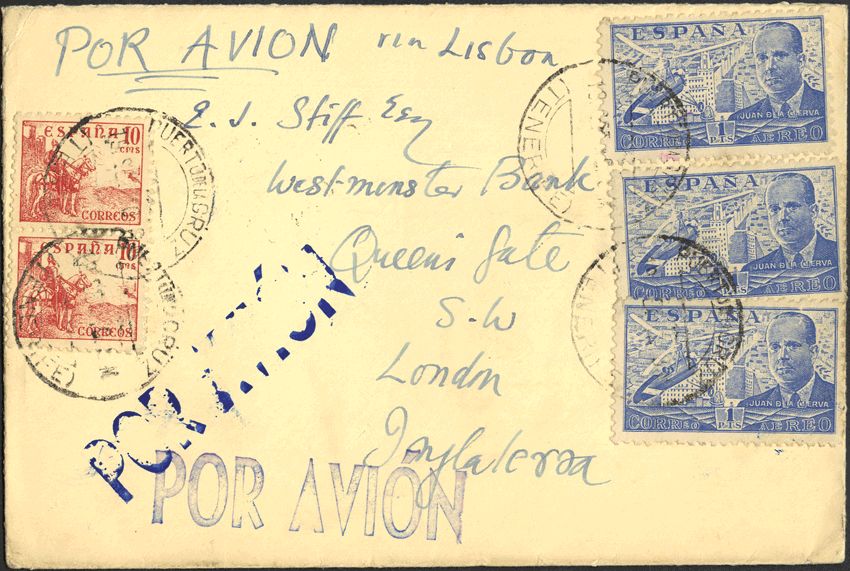 POR AVION via Lisbon
ESPAÑA
JUAN DE LA CIERVA
1 PTS
CORREO AEREO
ESPAÑA 10 cms
CORREOS
PUERTO DE LA CRUZ
(TENERIFE)
E. J. Stiff Esq
Westminster Bank
Queens Gate
S.W
London
Inglaterra
ESPAÑA 10 cms
CORREOS
PUERTO DE LA CRUZ
(TENERIFE)
ESPAÑA
JUAN DE LA CIERVA
1 PTS
CORREO AEREO
ESPAÑA
JUAN DE LA CIERVA
1 PTS
CORREO AEREO
POR AVIÓN
POR AVIÓN